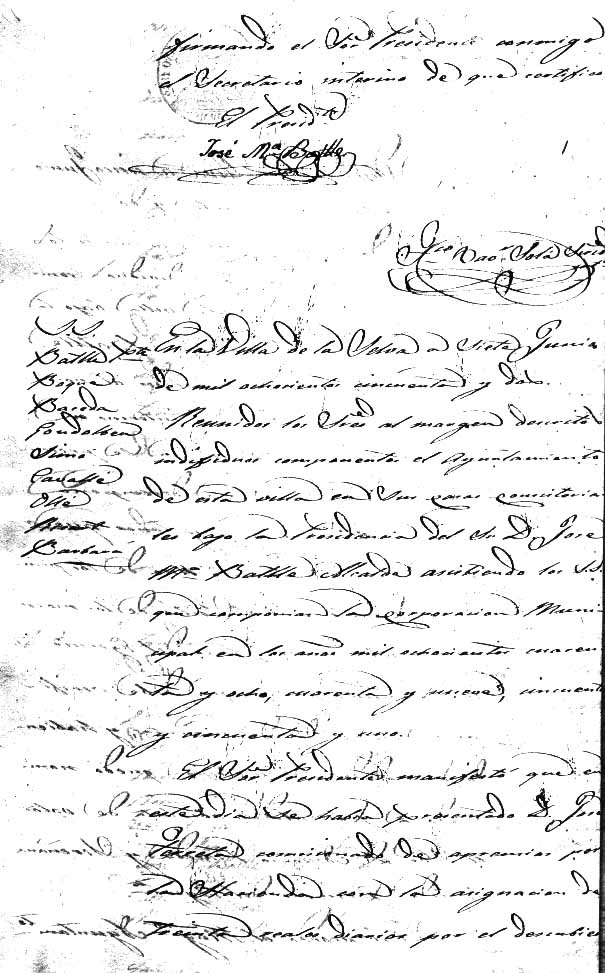 firmando el Sor. Presidente conmigo
el Secretario interino de que certifico
El Presid.te
José Ma. Batlle
Solá Srio
S.S.
Batlle Pte
Bogué
Baceda
Simó
Cavallé
Ollé
Barbará
En la Villa de la Selva a siete Junio
de mil ochocientos cincuenta y dos.
Reunidos los Sres al margen descritos
individuos componentes el Ayuntamiento
de esta villa en sus casas consistoria
les bajo la Presidencia del Sr. D. José
Ma. Batlle Alcalde asistiendo los S.S.
que componian la corporacion Muni
cipal en los años mil ochocientos cuaren
ta y ocho, cuarenta y nueve, cincuenta
y cincuenta y uno.
El Sor. Presidente manifestó que en
este dia se habia presentado D. José
comisionado de apremios por
la Hacienda con la asignacion de
treinta reales diarios por el descubier